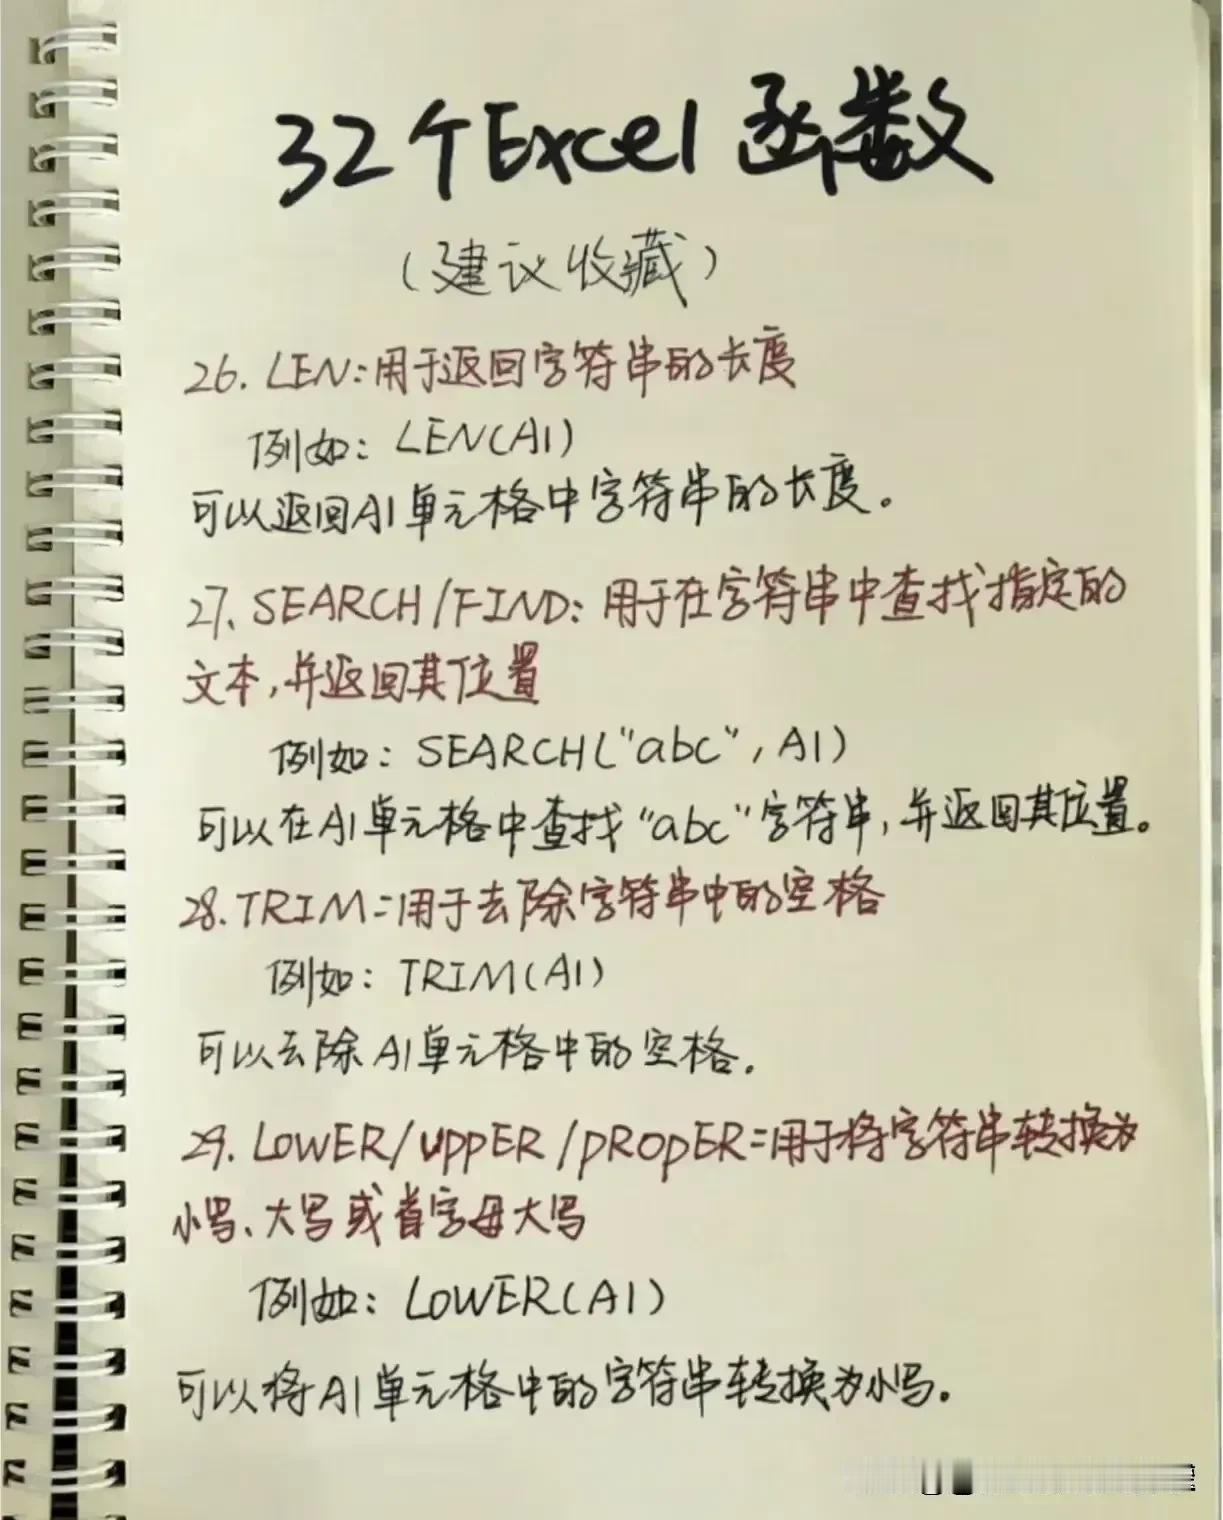 32个Excel函数
(建议收藏)
26. LEN:用于返回字符串的长度
例如: LEN(A1)
可以返回A1单元格中字符串的长度。
27、SEARCH/FIND: 用于在字符串中查找指定的
文本,并返回其位置
例如: SEARCH("abc", A1)
可以在A1单元格中查找"abc"字符串,并返回其位置。
28.TRIM:用于去除字符串中的空格
例如: TRIM(A1)
可以去除A1单元格中的空格.
29. LOWER/UPPER/PROPER:用于将字符串转换为
小写、大写或首字母大写
例如: LOWER(A1)
可以将A1单元格中的字符串转换为小写。